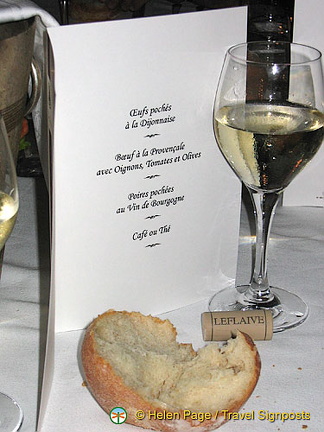 Œufs pochés
à la Dijonnaise
Bœuf à la Provençale
avec Oignons, Tomates et Olives
Poires pochées
au Vin de Bourgogne
Café ou Thé
LEFLAIVE
© Helen Page / Travel Signposts